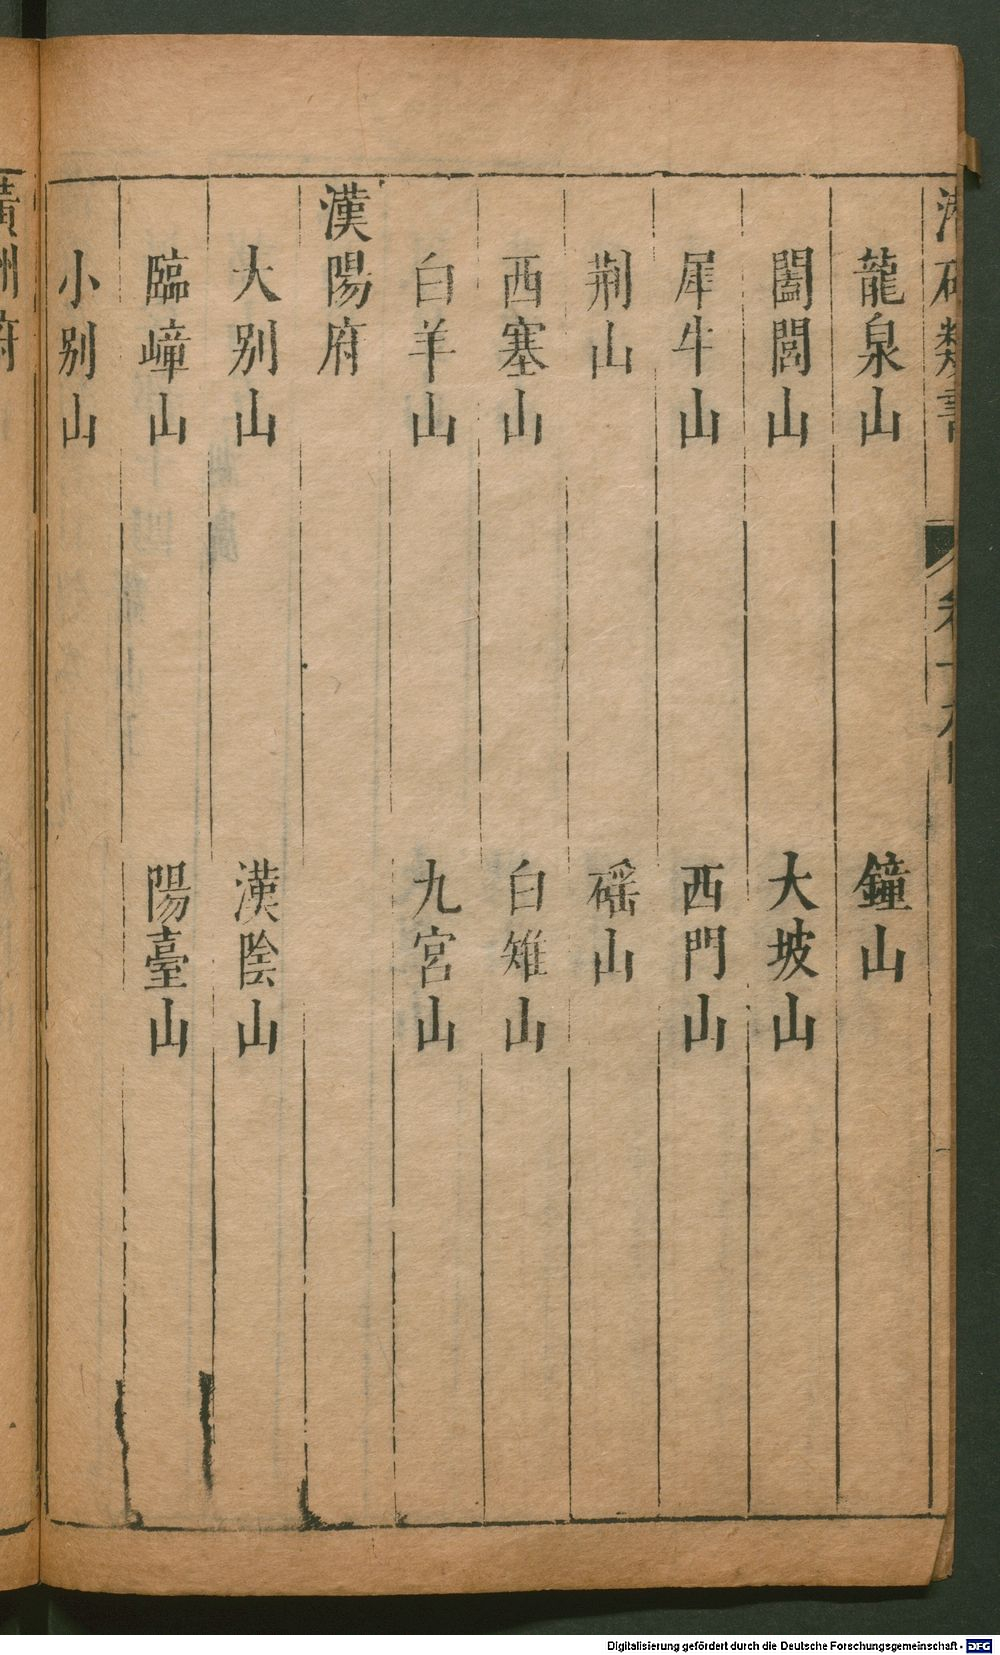 潛確類書 卷十九
龍泉山 鐘山
闔閭山 大坡山
犀牛山 西門山
荆山 磘山
西塞山 白雉山
白羊山 九宮山
漢陽府
大别山 漢陰山
臨嶂山 陽臺山
小别山
黃州府
Digitalisierung gefördert durch die Deutsche Forschungsgemeinschaft - DFG